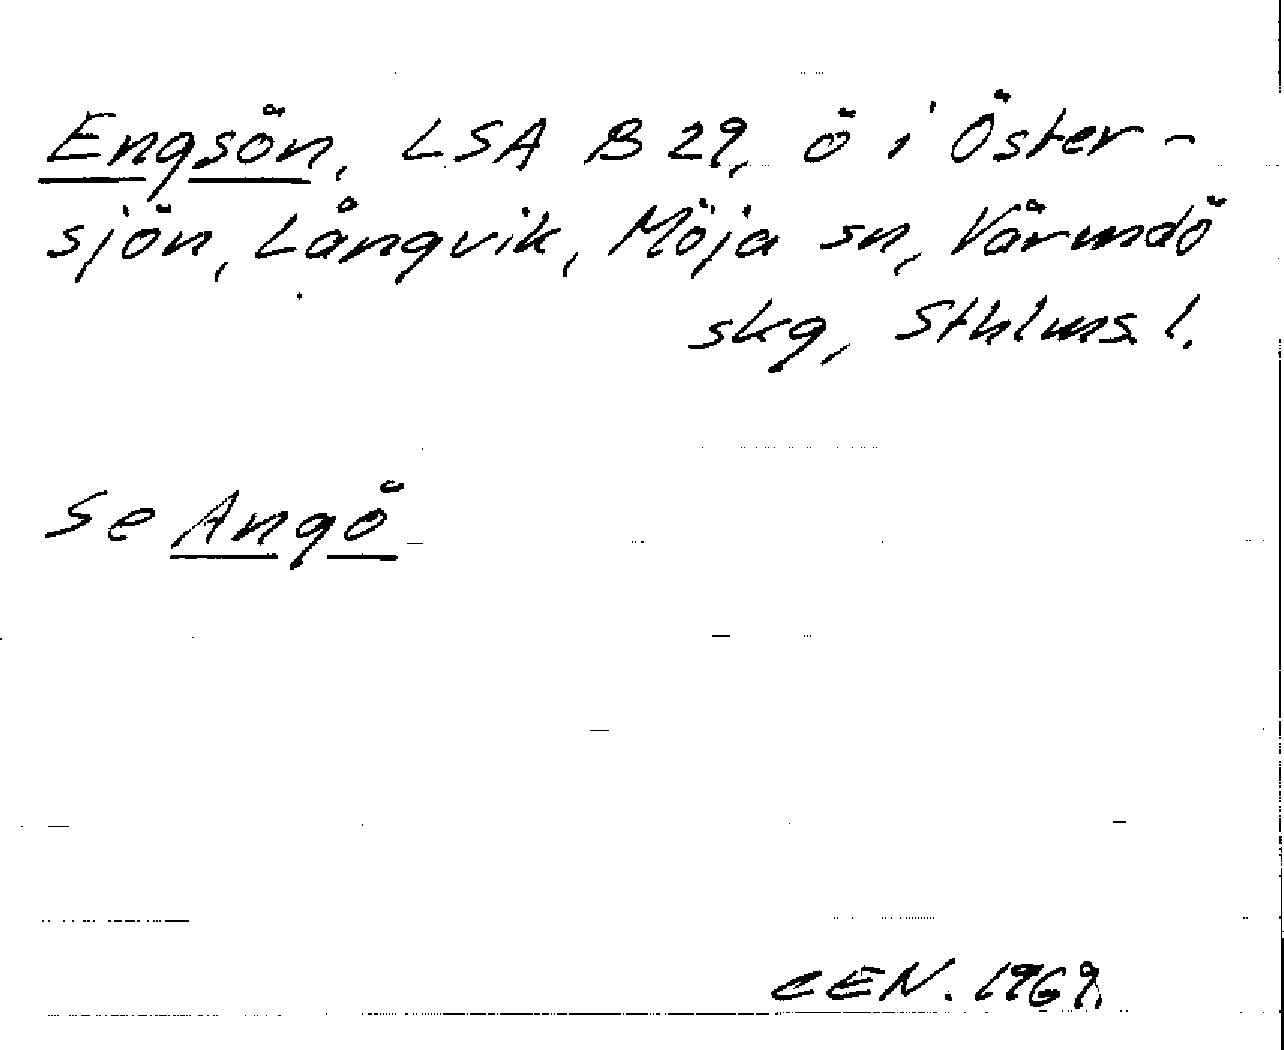 Engsön, LSA B 29, ö i Öster-
sjön, Långvik, Möja sn, Värmdö
skg, Sthlms l.
Se Angö
CEN. 1969.